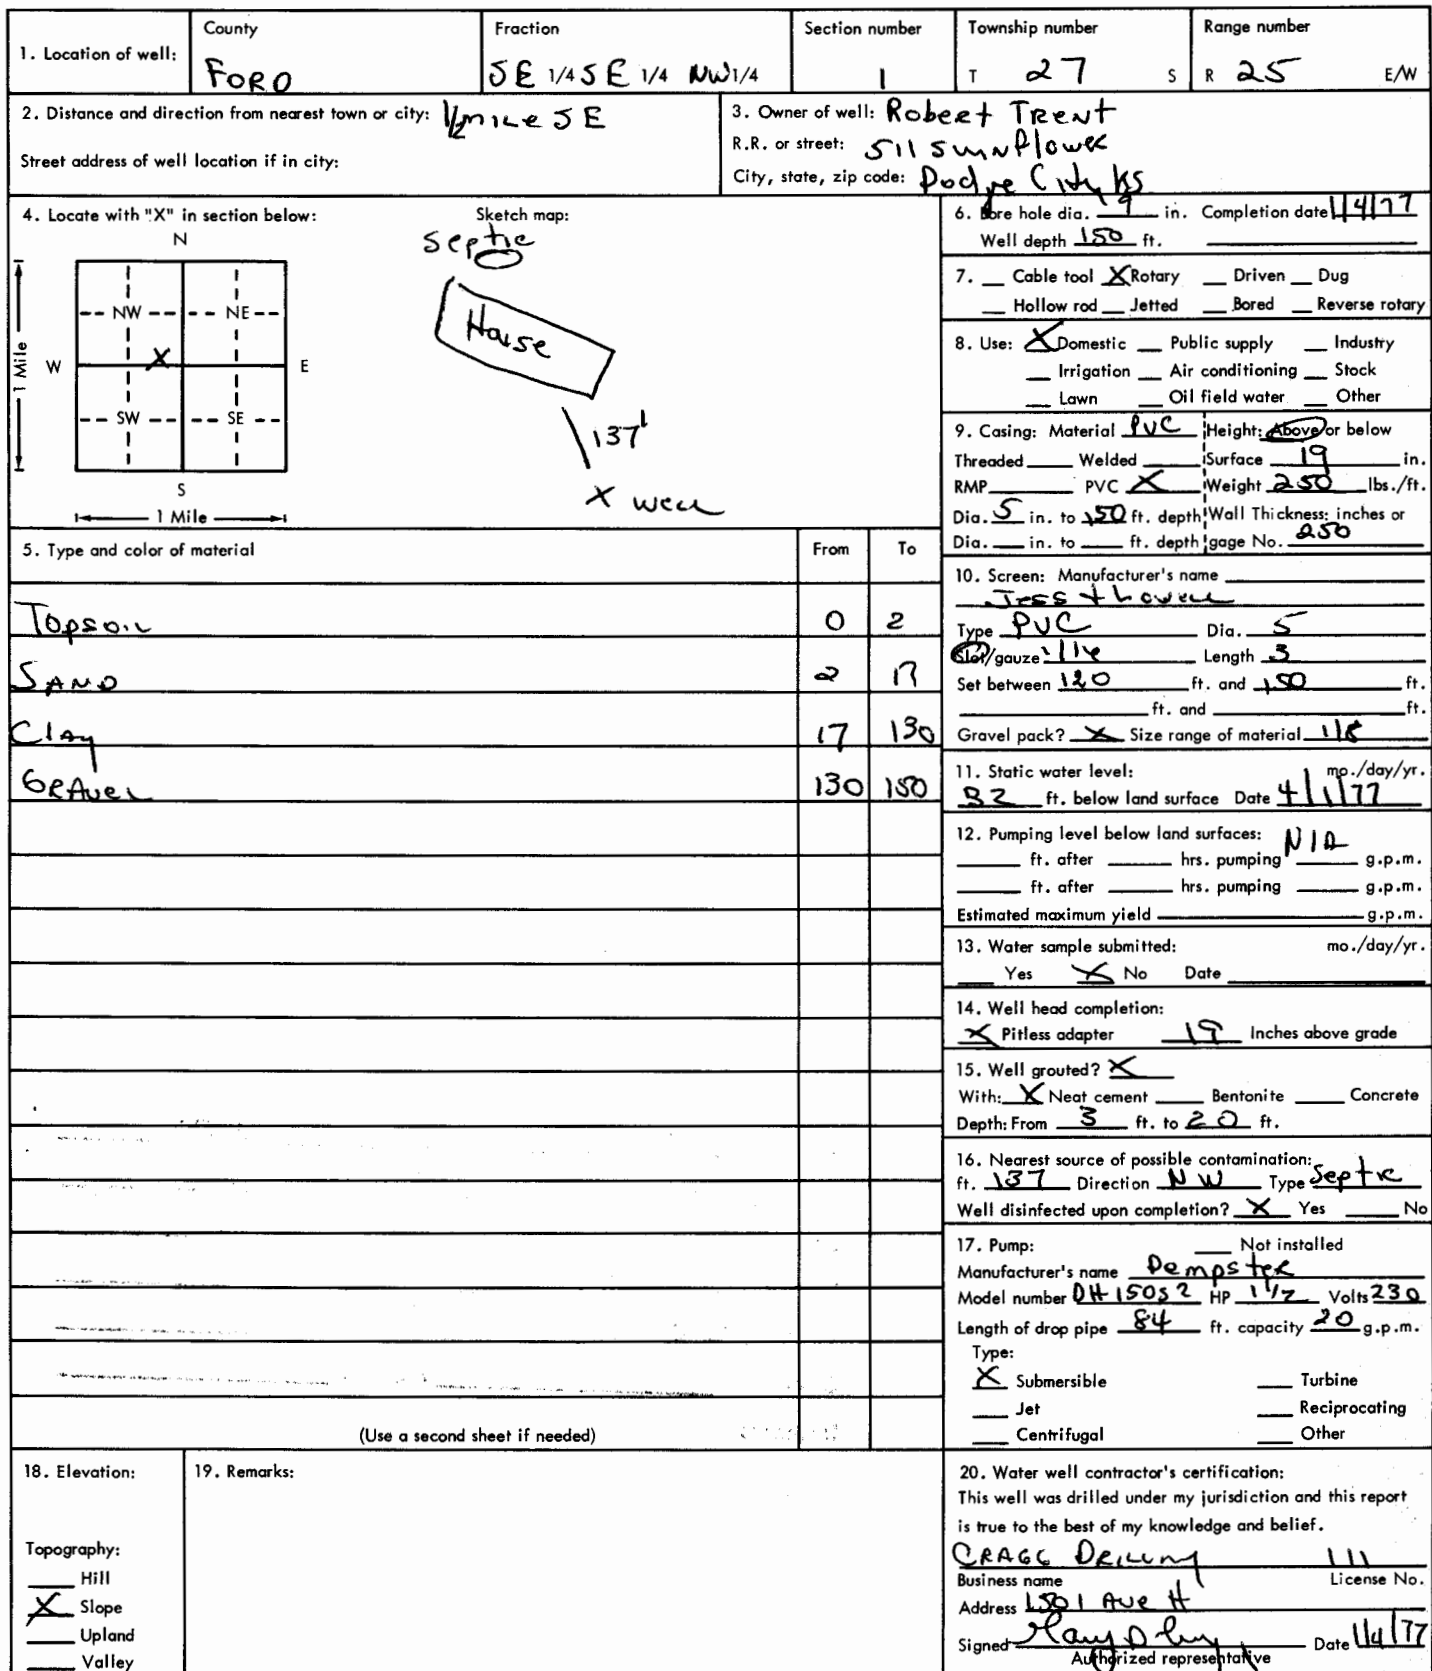 1. Location of well:
County
FORD
Fraction
SE 1/4 SE 1/4 NW 1/4
Section number
1
Township number
T 27 S
Range number
R 25 E/W
2. Distance and direction from nearest town or city: 1/2 mile SE
Street address of well location if in city:
3. Owner of well: Robert Trent
R.R. or street: 511 Sunflower
City, state, zip code: Dodge City KS
4. Locate with "X" in section below:
N
NW NE
W X E
SW SE
S
1 Mile
1 Mile
Sketch map:
septic
House
137'
X well
5. Type and color of material From To
Topsoil 0 2
SAND 2 17
Clay 17 130
GRAVEL 130 150
(Use a second sheet if needed)
6. Bore hole dia. 9 in. Completion date 1/4/77
Well depth 150 ft.
7. __ Cable tool X Rotary __ Driven __ Dug
__ Hollow rod __ Jetted __ Bored __ Reverse rotary
8. Use: X Domestic __ Public supply __ Industry
__ Irrigation __ Air conditioning __ Stock
__ Lawn __ Oil field water __ Other
9. Casing: Material PVC Height: Above or below
Threaded ___ Welded ___ Surface 19 in.
RMP ___ PVC X Weight 250 lbs./ft.
Dia. 5 in. to 150 ft. depth Wall Thickness: inches or
Dia. ___ in. to ___ ft. depth gage No. 250
10. Screen: Manufacturer's name
Jess + Lowell
Type PVC Dia. 5
Slot/gauze Length 3
Set between 120 ft. and 150 ft.
___ ft. and ___ ft.
Gravel pack? X Size range of material 1/8
11. Static water level: mo./day/yr.
32 ft. below land surface Date 4/1/77
12. Pumping level below land surfaces: N/A
___ ft. after ___ hrs. pumping ___ g.p.m.
___ ft. after ___ hrs. pumping ___ g.p.m.
Estimated maximum yield ___ g.p.m.
13. Water sample submitted: mo./day/yr.
__ Yes X No Date
14. Well head completion:
X Pitless adapter 19 Inches above grade
15. Well grouted? X
With: X Neat cement ___ Bentonite ___ Concrete
Depth: From 3 ft. to 20 ft.
16. Nearest source of possible contamination:
ft. 137 Direction NW Type Septic
Well disinfected upon completion? X Yes ___ No
17. Pump: ___ Not installed
Manufacturer's name Dempster
Model number DH 150S2 HP 1 1/2 Volts 230
Length of drop pipe 84 ft. capacity 20 g.p.m.
Type:
X Submersible ___ Turbine
___ Jet ___ Reciprocating
___ Centrifugal ___ Other
18. Elevation:
Topography:
___ Hill
X Slope
___ Upland
___ Valley
19. Remarks:
20. Water well contractor's certification:
This well was drilled under my jurisdiction and this report
is true to the best of my knowledge and belief.
CRAGG DRILLING 111
Business name License No.
Address 1501 Ave H
Signed Date 1/4/77
Authorized representative